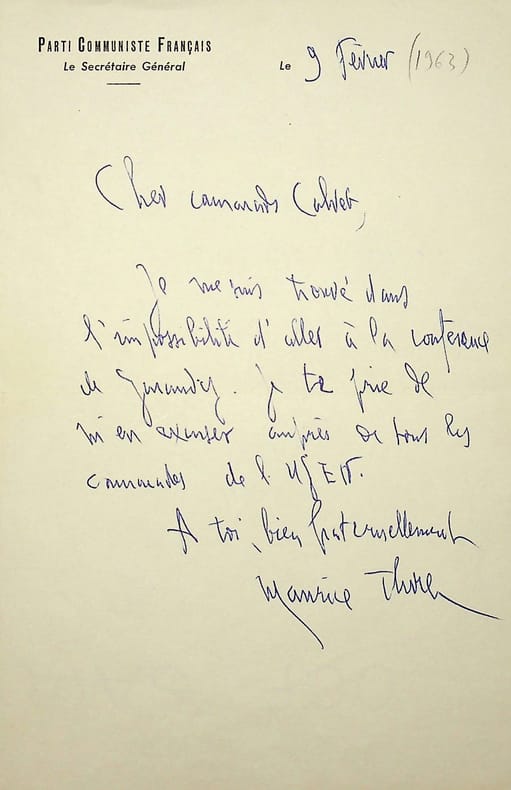 PARTI COMMUNISTE FRANÇAIS
Le Secrétaire Général
Le 9 Février (1963)
Cher camarade Calvet,
Je me suis trouvé dans
l'impossibilité d'aller à la conférence
de . Je te prie de
m'en excuser auprès de tous les
camarades de l'
A toi, bien fraternellement
Maurice Thorez